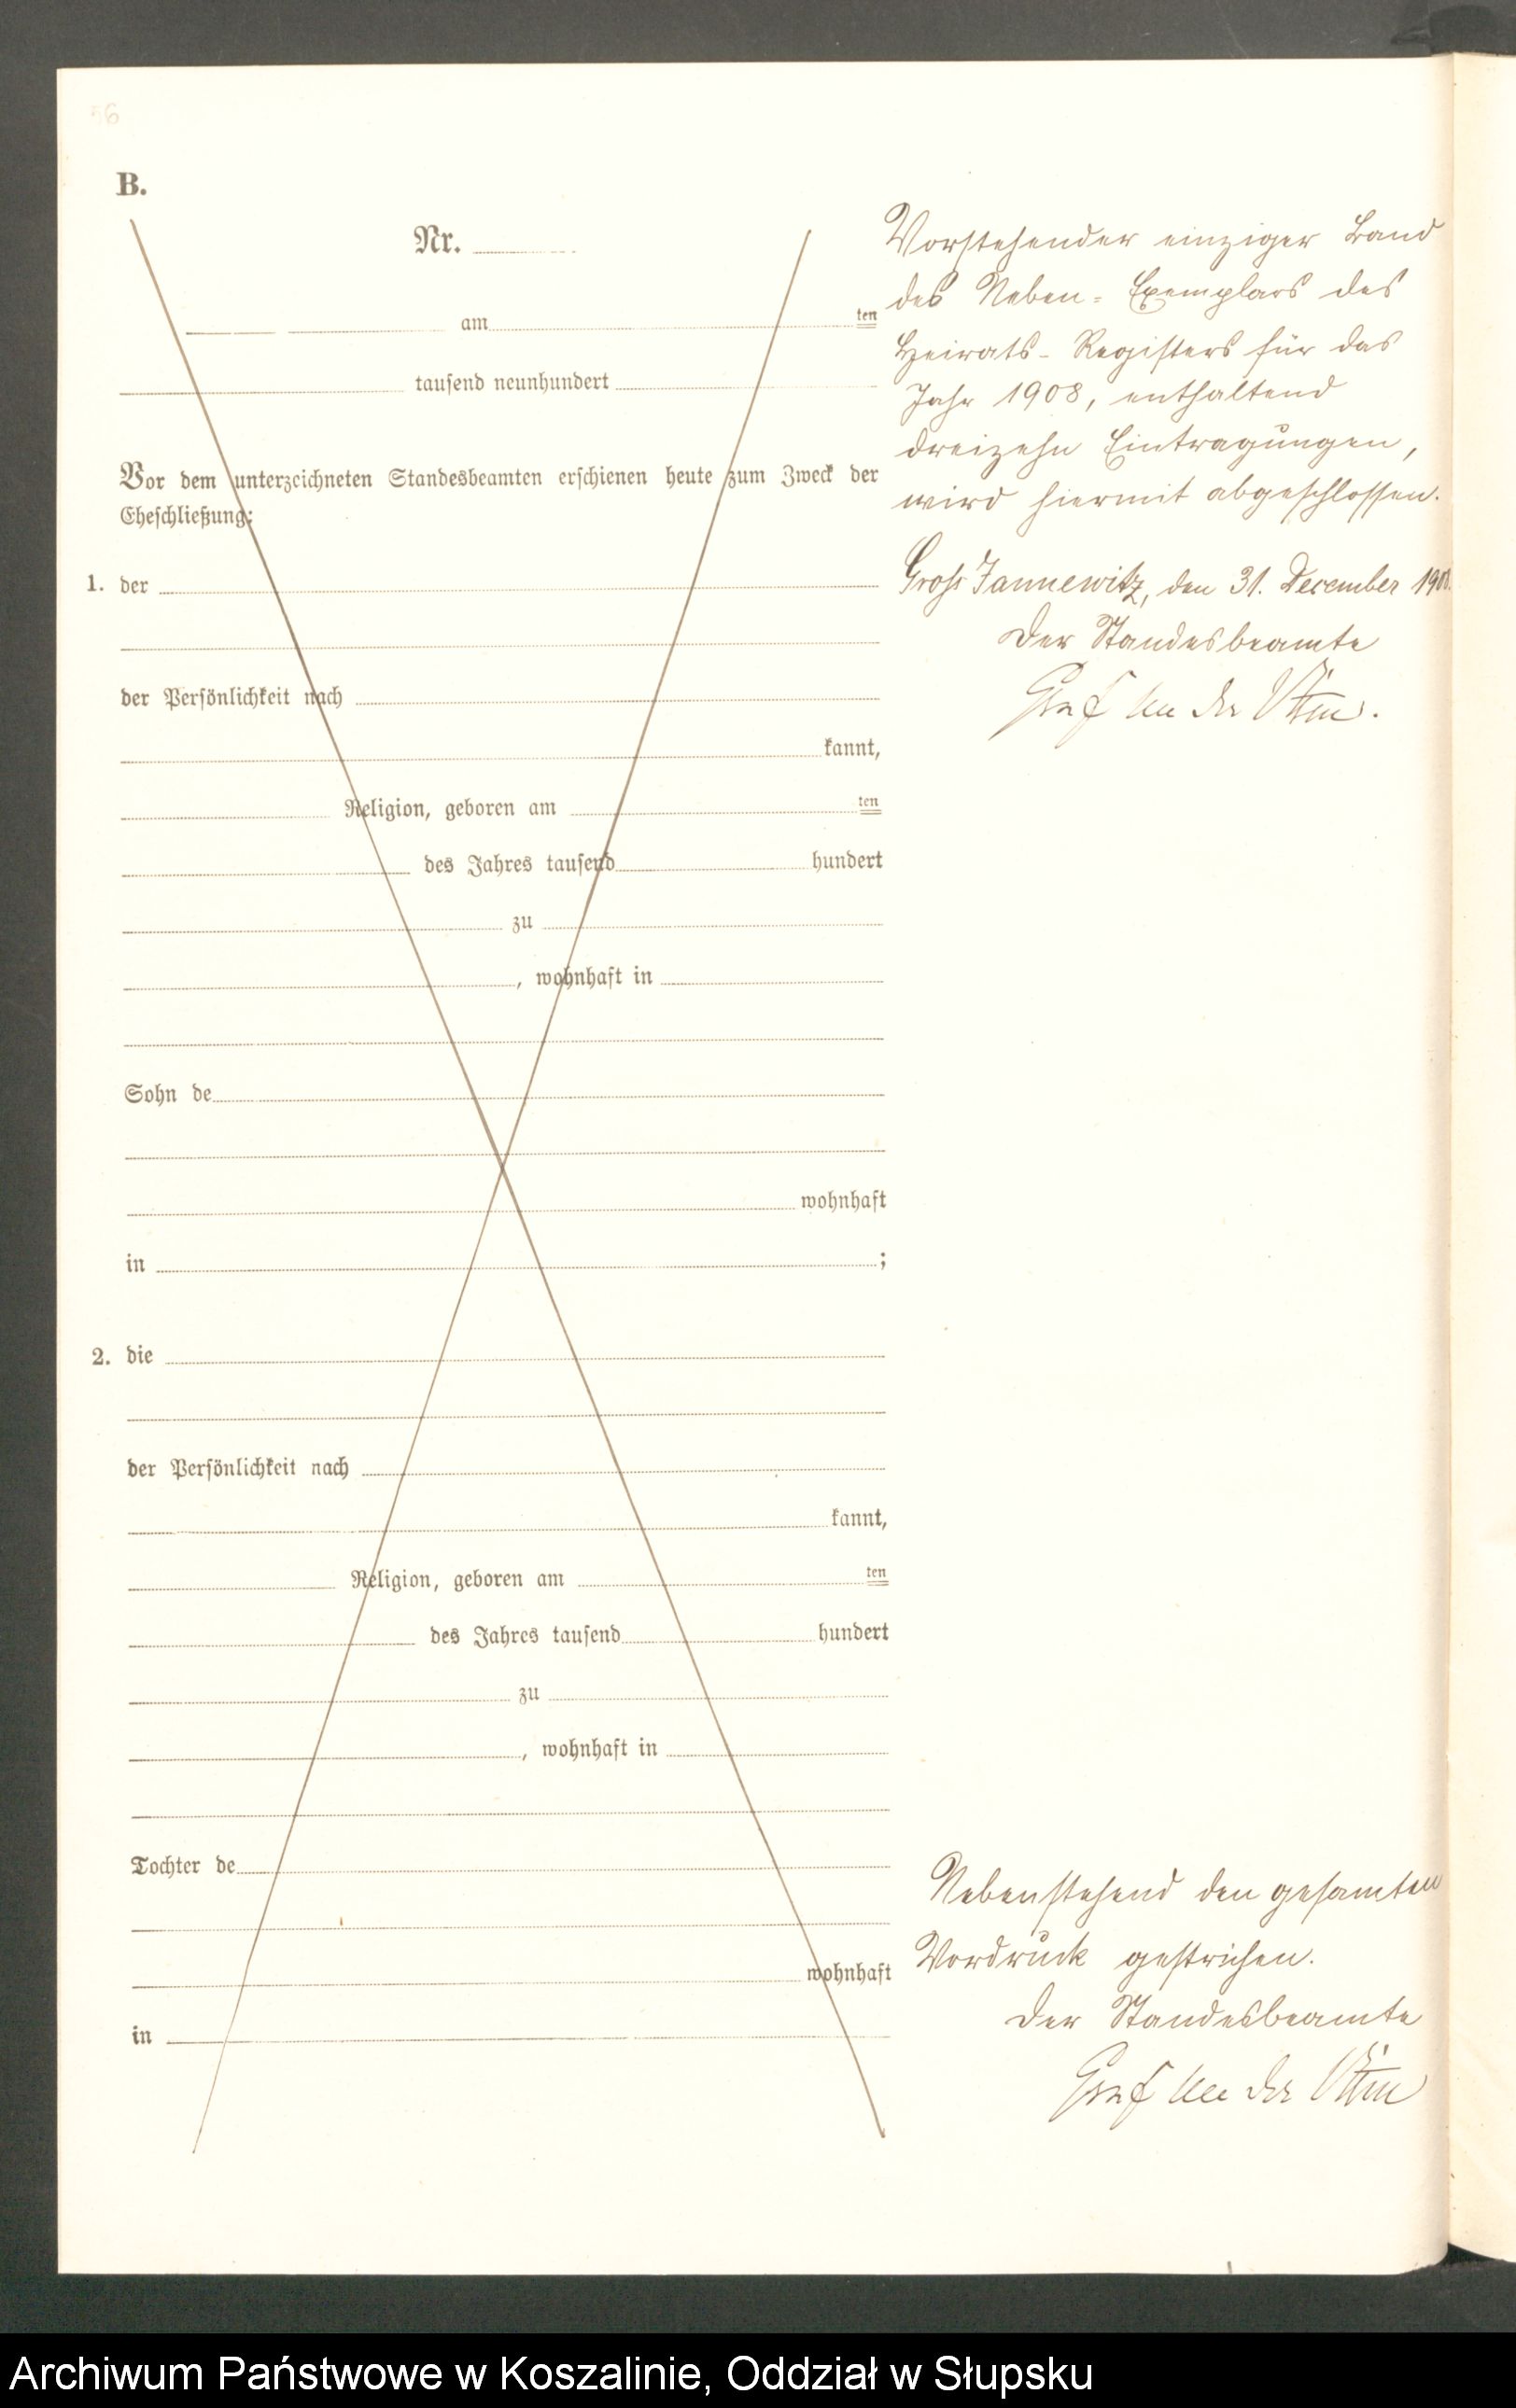 56
B.
Nr.
am ten
tausend neunhundert
Vor dem unterzeichneten Standesbeamten erschienen heute zum Zweck der
Eheschließung:
1. der
der Persönlichkeit nach
kannt,
Religion, geboren am ten
des Jahres tausend hundert
zu
, wohnhaft in
Sohn de
wohnhaft
in ;
2. die
der Persönlichkeit nach
kannt,
Religion, geboren am ten
des Jahres tausend hundert
zu
, wohnhaft in
Tochter de
wohnhaft
in
Vorstehender einziger Band
des Neben-Exemplars des
Heirats-Registers für das
Jahr 1908, enthaltend
dreizehn Eintragungen,
wird hiermit abgeschlossen.
Gross Jannewitz, den 31. December 1908.
Der Standesbeamte
Graf von der
Nebenstehend den gesamten
Vordruck gestrichen.
Der Standesbeamte
Graf von der
Archiwum Państwowe w Koszalinie, Oddział w Słupsku